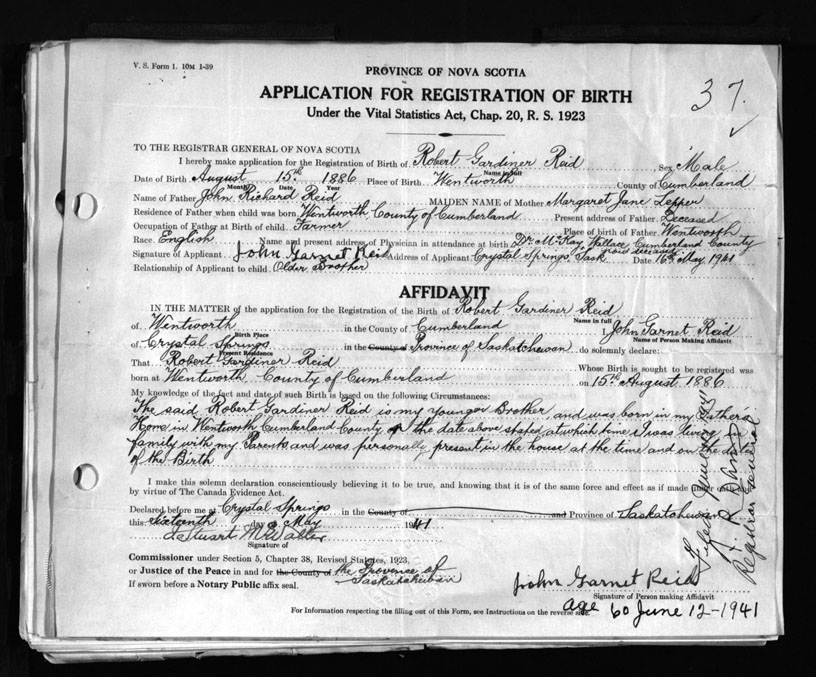 V. S. Form 1. 10M 1-39
37.
PROVINCE OF NOVA SCOTIA
APPLICATION FOR REGISTRATION OF BIRTH
Under the Vital Statistics Act, Chap. 20, R. S. 1923
TO THE REGISTRAR GENERAL OF NOVA SCOTIA
I hereby make application for the Registration of Birth of Robert Gardiner Reid Sex Male
Name in full
Date of Birth August 15th 1886 Place of Birth Wentworth County of Cumberland
Month Date Year
Name of Father John Richard Reid MAIDEN NAME of Mother Margaret Jane
Residence of Father when child was born Wentworth County of Cumberland Present address of Father Deceased
Occupation of Father at Birth of child Farmer Place of birth of Father Wentworth
Race English Name and present address of Physician in attendance at birth Dr. McKay Wallace Cumberland County
now deceased
Signature of Applicant John Garnet Reid Address of Applicant Crystal Springs Sask Date 16th May 1941
Relationship of Applicant to child Older Brother
AFFIDAVIT
IN THE MATTER of the application for the Registration of the Birth of Robert Gardiner Reid
Name in full
of Wentworth in the County of Cumberland I John Garnet Reid
Birth Place Name of Person Making Affidavit
of Crystal Springs in the County of Province of Saskatchewan do solemnly declare:
Present Residence
That Robert Gardiner Reid Whose Birth is sought to be registered was
born at Wentworth, County of Cumberland on 15th August 1886
My knowledge of the fact and date of such Birth is based on the following Circumstances:
The said Robert Gardiner Reid is my younger Brother, and was born in my Fathers
Home in Wentworth Cumberland County on the date above stated at which time I was living
family with my Parents and was personally present in the house at the time and on the date
of the Birth
I make this solemn declaration conscientiously believing it to be true, and knowing that it is of the same force and effect as if made under oath
by virtue of The Canada Evidence Act.
Declared before me at Crystal Springs in the County of and Province of Saskatchewan
this sixteenth day of May 1941
Signature of
Commissioner under Section 5, Chapter 38, Revised Statutes, 1923,
or Justice of the Peace in and for the County of the Province of
Saskatchewan
If sworn before a Notary Public affix seal.
John Garnet Reid
Signature of Person making Affidavit
For Information respecting the filling out of this Form, see Instructions on the reverse side.
age 60 June 12-1941
Filed June
Registrar General